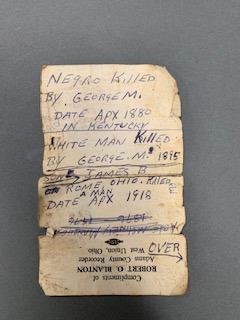 NEGRO KILLED
BY GEORGE M.
DATE APX 1880
IN KENTUCKY
WHITE MAN KILLED
BY GEORGE. M. 1895
JAMES B
ROME, OHIO. KILLED
A MAN
DATE APX 1918
OVER
Compliments of
ROBERT O. BLANTON
Adams County Recorder
West Union, Ohio